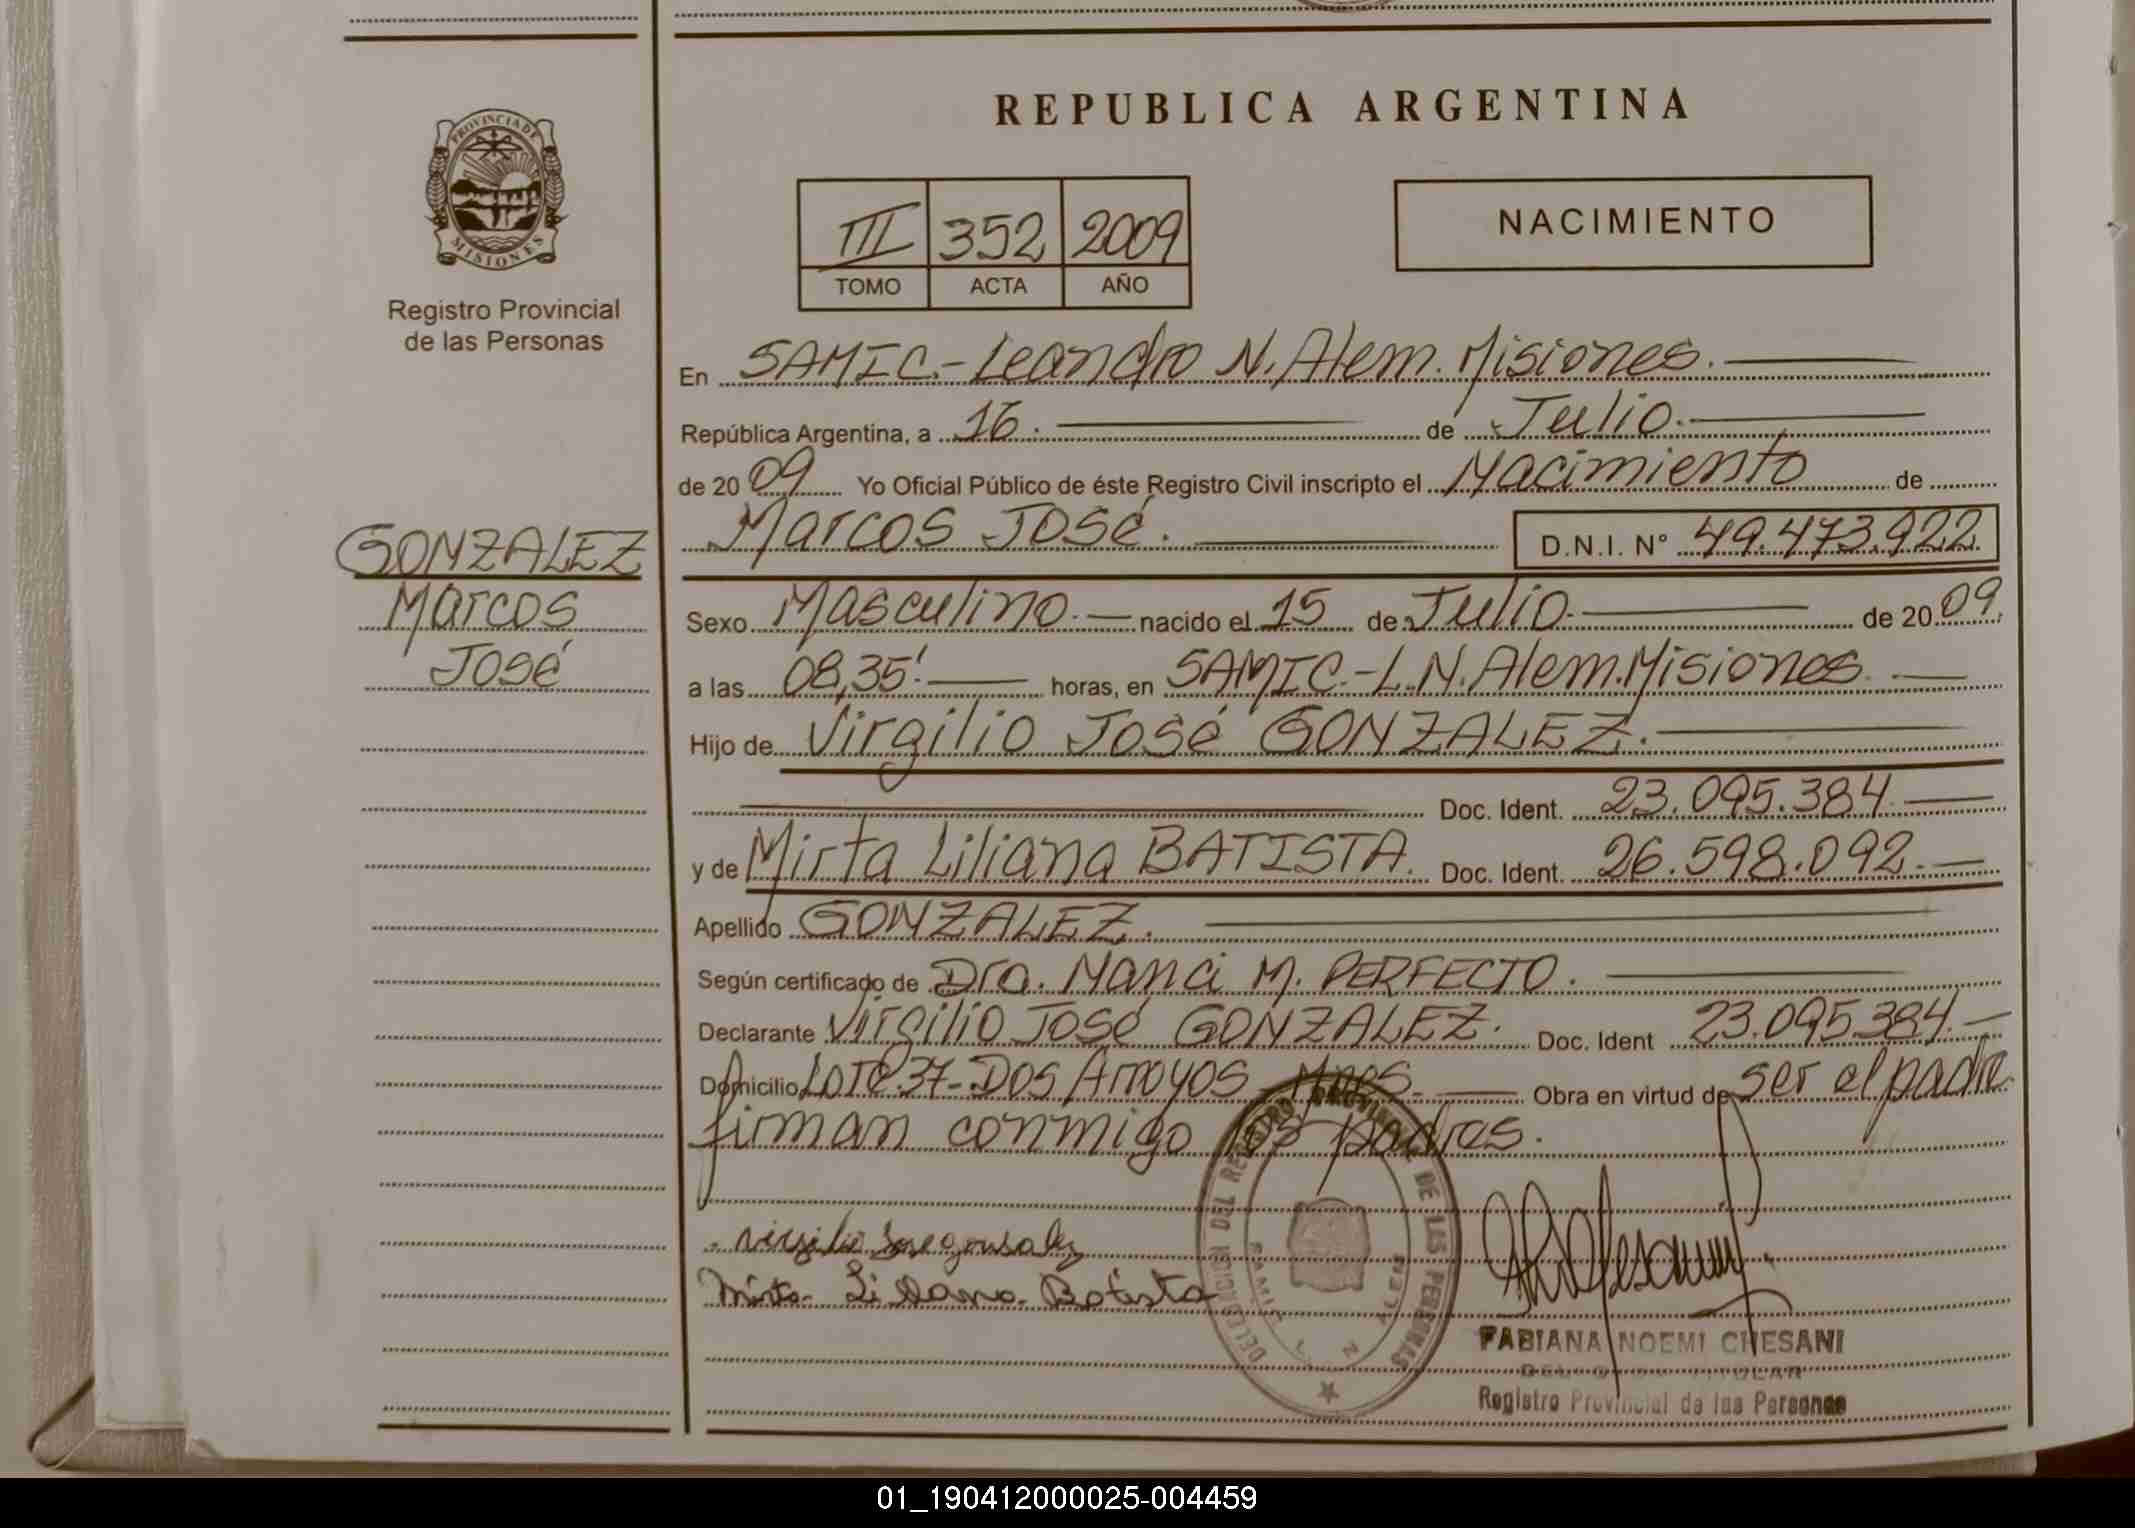 PROVINCIA DE
MISIONES
Registro Provincial
de las Personas
GONZALEZ
Marcos
José
REPUBLICA ARGENTINA
III 352 2009
TOMO ACTA AÑO
NACIMIENTO
En SAMIC.-Leandro N. Alem. Misiones.
República Argentina, a 16. de Julio.
de 2009 Yo Oficial Público de éste Registro Civil inscripto el Nacimiento de
Marcos José. D.N.I. N° 49.473.922
Sexo Masculino. nacido el 15 de Julio. de 2009.
a las 08,35'. horas, en SAMIC.-L.N.Alem.Misiones
Hijo de Virgilio José GONZALEZ.
Doc. Ident. 23.095.384.
y de Mirta Liliana BATISTA. Doc. Ident. 26.598.092.
Apellido GONZALEZ.
Según certificado de Dra. Nanci M. PERFECTO.
Declarante Virgilio José GONZALEZ. Doc. Ident 23.095.384.
Domicilio Lote.37-Dos Arroyos-Mnes. Obra en virtud de ser el padre
firman conmigo los padres.
virgilio Jose gonsalez
Mirta Liliana Batista
DELEGACION DEL REGISTRO PROVINCIAL DE LAS PERSONAS
FABIANA NOEMI CHESANI
TITULAR
Registro Provincial de las Personas
01_190412000025-004459